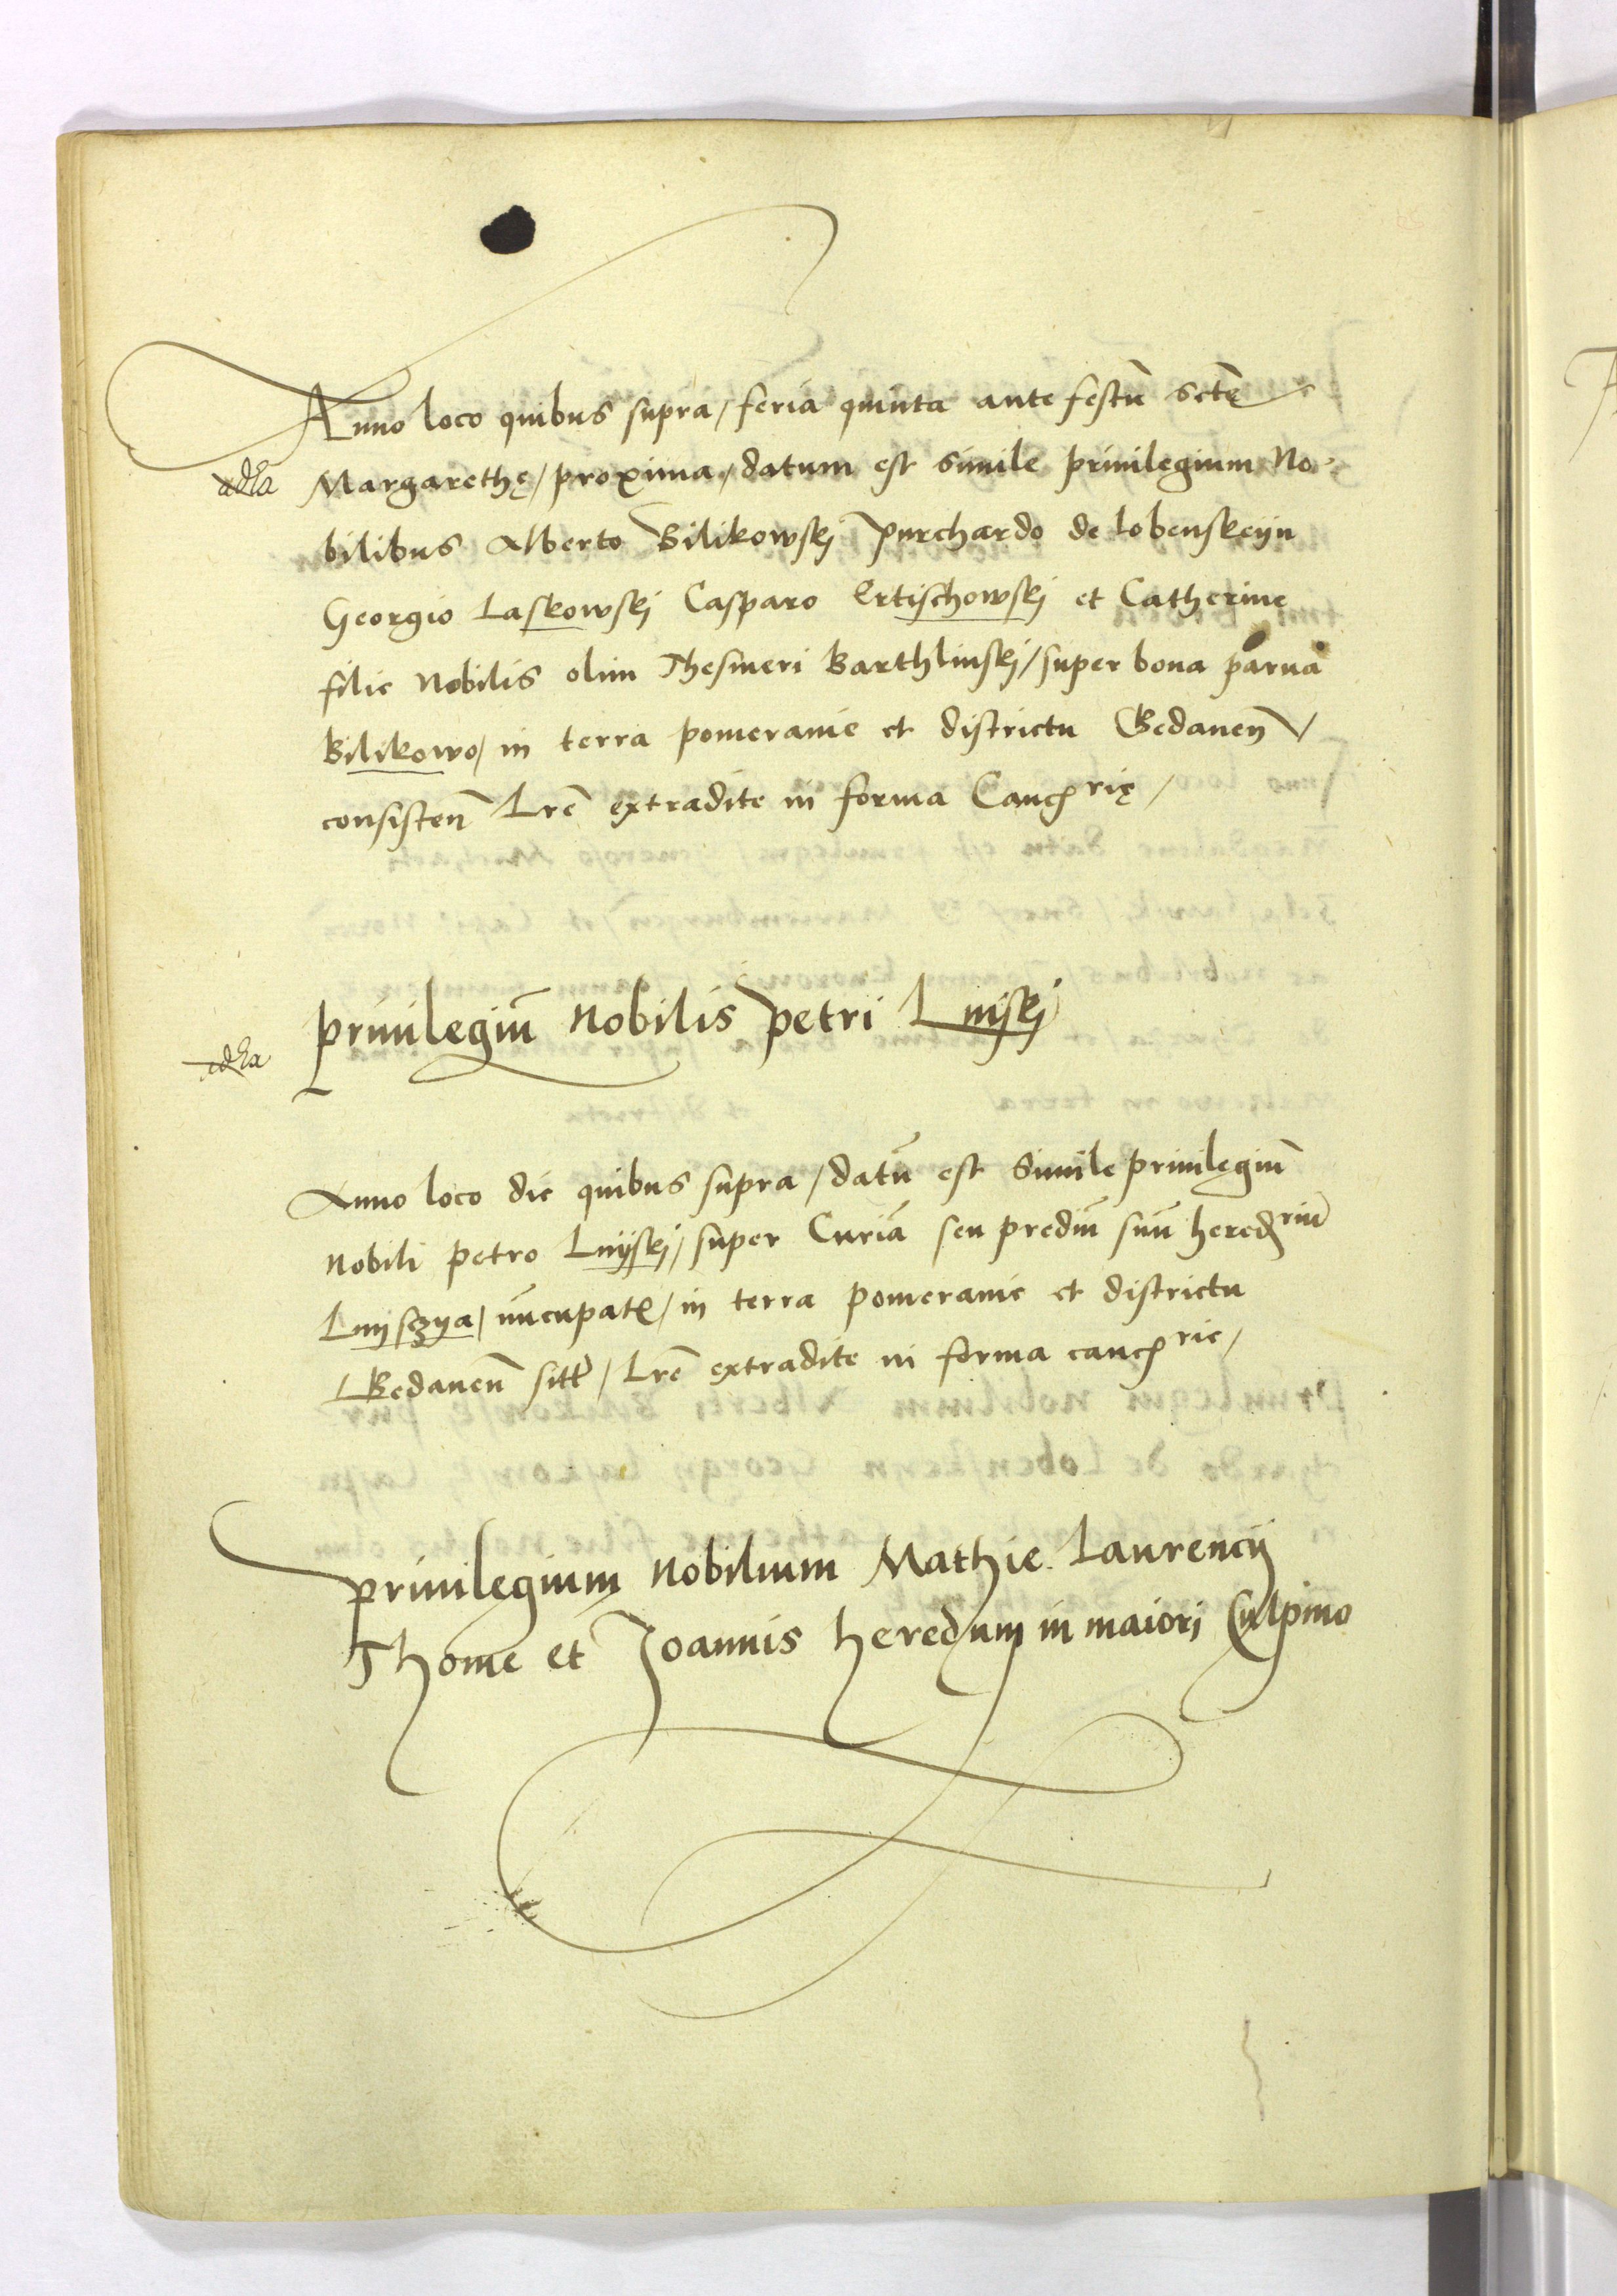 Anno loco quibus supra / feria quinta ante festū sctę
Margarethę / proxima / datum est simile priuilegium No-
bilibus Alberto Bilikowskj Purchardo de Lobenskeyn
Georgio Laskowskj Casparo Ertischowskj et Catherine
filie Nobilis olim Thesmeri Barthlinskj / super bona parua
Bilikowo / in terra pomeranie et districtu Gedaneñ /
consisteñ Lrē extradite in forma Cancrię /
priuilegiū Nobilis Petri Lnijskj
Anno loco die quibus supra / datū est Simile priuilegiū
Nobili Petro Lnijskj / super Curiā seu prediū suū heredriū
Lnijszya / nūcupat / in terra pomeranie et districtu
Gedaneñ sitt / Lrē extradite in forma cancrie /
priuilegium Nobilium Mathie Laurencij
Thome et Joannis heredum in maiori Culpino